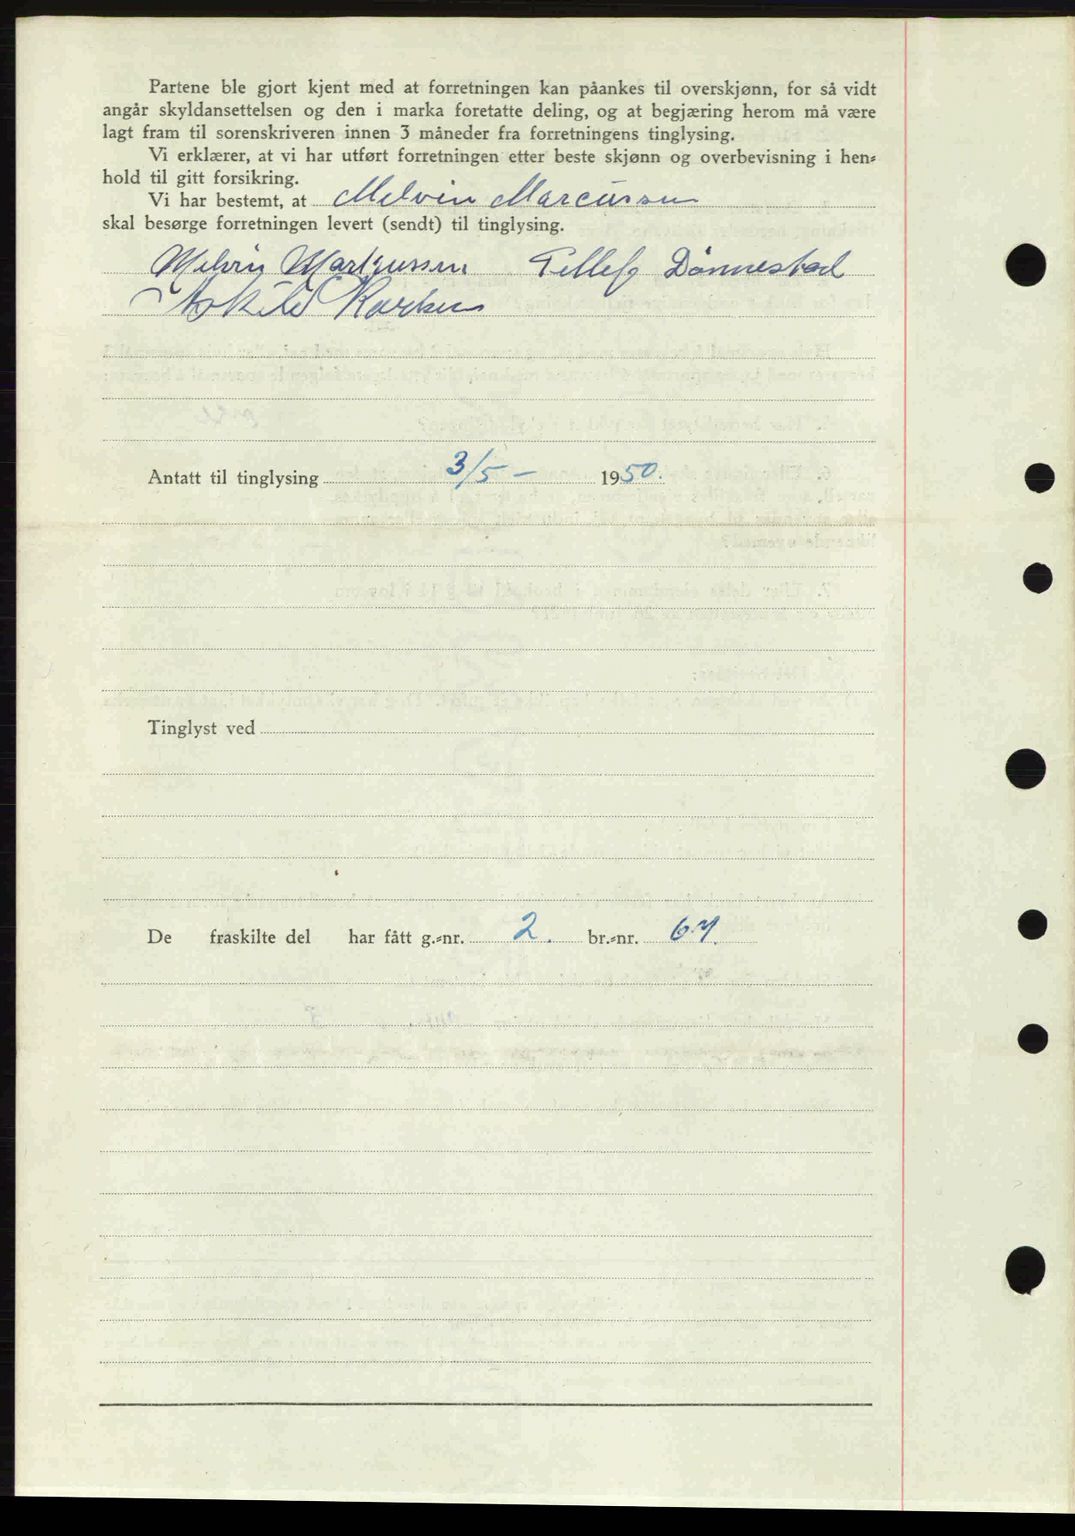 Partene ble gjort kjent med at forretningen kan påankes til overskjønn, for så vidt
angår skyldansettelsen og den i marka foretatte deling, og at begjæring herom må være
lagt fram til sorenskriveren innen 3 måneder fra forretningens tinglysing.
Vi erklærer, at vi har utført forretningen etter beste skjønn og overbevisning i hen=
hold til gitt forsikring.
Vi har bestemt, at Melvin Marcussen
skal besørge forretningen levert (sendt) til tinglysing.
Melvin Markussen Tellef Dønnestad
Askild
Antatt til tinglysing 3/5 – 1950.
Tinglyst ved
De fraskilte del har fått g.=nr. 2. br.=nr. 67.